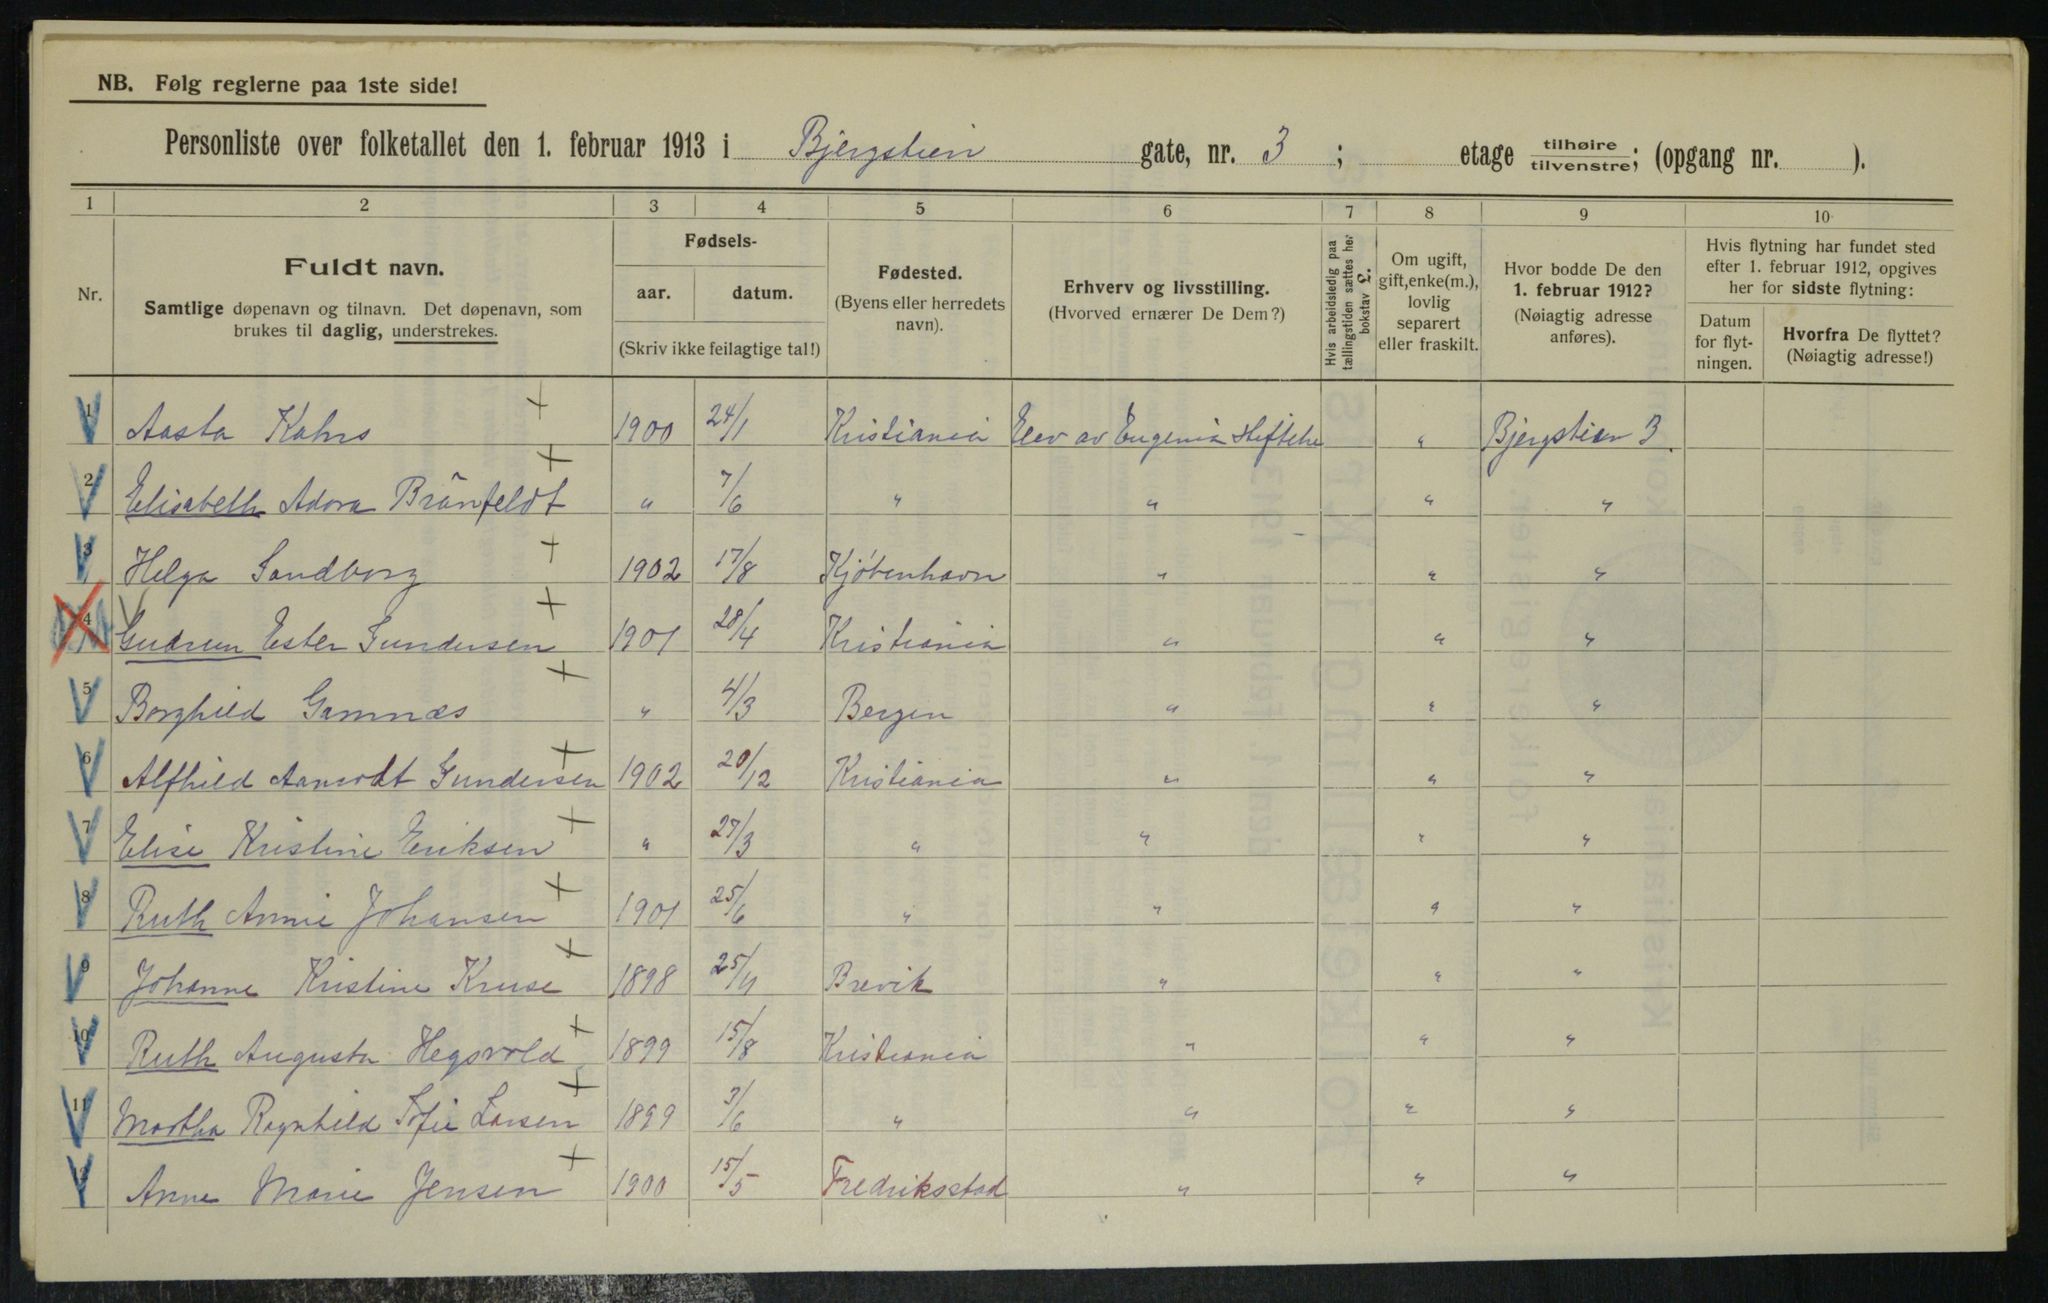 NB. Følg reglerne paa 1ste side!
Personliste over folketallet den 1. februar 1913 i Bjergstien gate, nr. 3 ; etage tilhøire tilvenstre; (opgang nr. ).
1 2 3 4 5 6 7 8 9 10
Nr.
Fuldt navn.
Samtlige døpenavn og tilnavn. Det døpenavn, som
brukes til daglig, understrekes.
Fødsels-
aar. datum.
(Skriv ikke feilagtige tal!)
Fødested.
(Byens eller herredets
navn).
Erhverv og livsstilling.
(Hvorved ernærer De Dem?)
Hvis arbeidsledig paa
tællingstiden sættes her
bokstav L.
Om ugift,
gift, enke(m.),
lovlig
separert
eller fraskilt.
Hvor bodde De den
1. februar 1912?
(Nøiagtig adresse
anføres).
Hvis flytning har fundet sted
efter 1. februar 1912, opgives
her for sidste flytning:
Datum
for flyt-
ningen.
Hvorfra De flyttet?
(Nøiagtig adresse!)
1 Aasta Kahrs 1900 24/1 Kristiania Elev av Eugenia Stiftelse " Bjergstien 3.
2 Elisabeth Adora Brånfeldt " 7/6 " " " "
3 Helga Sandborg 1902 17/8 Kjøbenhavn " " "
4 Gudrun Ester Gundersen 1901 28/4 Kristiania " " "
5 Borghild Gamnæs " 4/3 Bergen " " "
6 Alfhild Aamodt Gundersen 1902 20/12 Kristiania " " "
7 Elise Kristine Eriksen " 27/3 " " " "
8 Ruth Annie Johansen 1901 25/6 " " " "
9 Johanne Kristine Kruse 1898 25/11 Brevik " " "
10 Ruth Augusta Hegsvold 1899 15/8 Kristiania " " "
11 Martha Ragnhild Sofie Larsen 1899 3/6 " " " "
12 Anne Marie Jensen 1900 15/5 Fredriksstad " " "